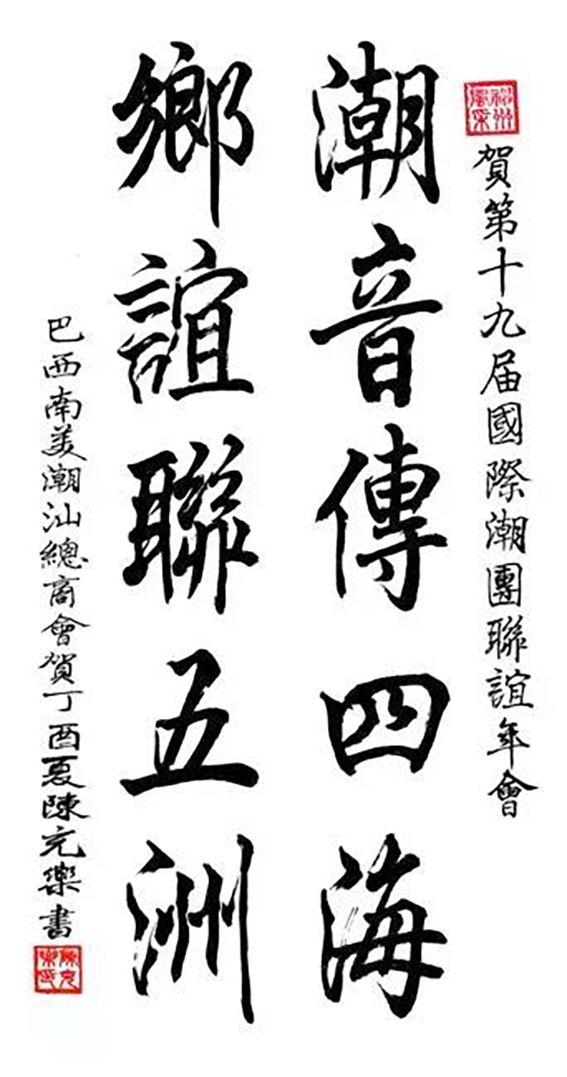 賀第十九届國際潮團聯誼年會
潮音傳四海
鄉誼聯五洲
巴西南美潮汕總商會賀丁酉夏陳克樂書